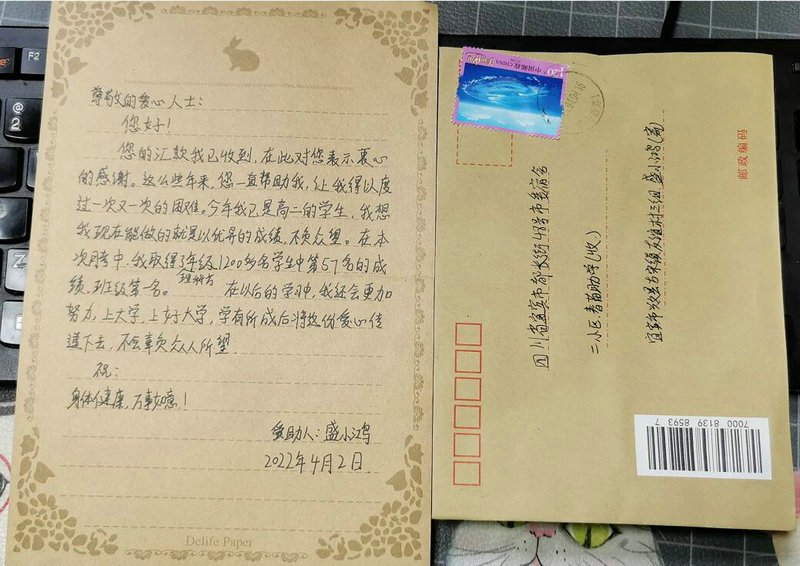 尊敬的爱心人士：
您好！
您的汇款我已收到，在此对您表示衷心
的感谢。这么些年来，您一直帮助我，让我得以度
过一次又一次的困难。今年我已是高二的学生，我想
我现在能做的就是以优异的成绩，不负众望。在本
次月考中，我取得了年级1200多名学生中第57名的成
绩，班级第一名。在以后的学习中，我还会更加
努力，上大学，上好大学，学有所成后将这份爱心传
递下去，不会辜负众人所望。
祝：
身体健康，万事如意！
受助人：盛小鸿
2022年4月2日
Delife Paper
中国邮政 CHINA
邮政编码
四川省宜宾市都长街48号市委宿舍
二小区 春苗助学(收)
7000 8139 8593 7
F2
@
2